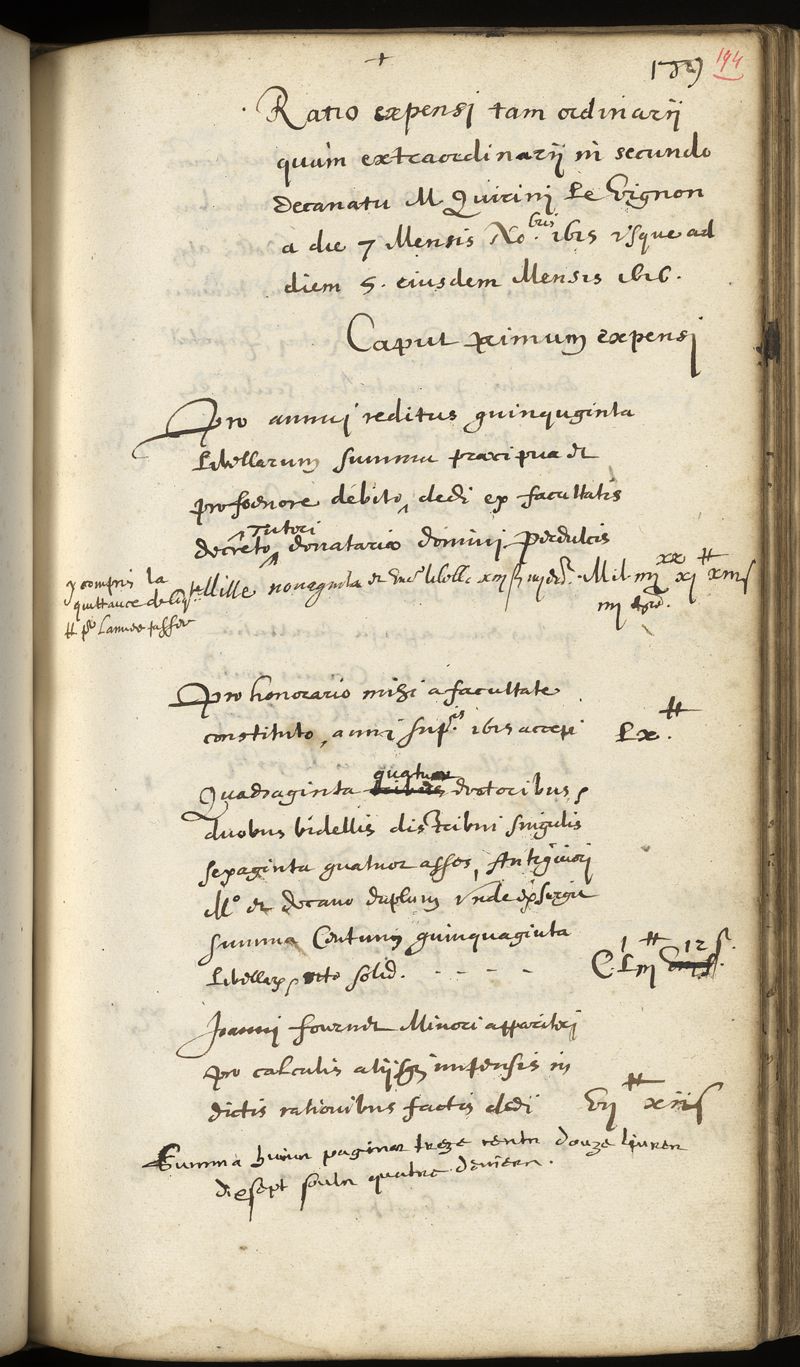 194
Ratio expensi tam ordinarij
quam extraordinarij in secundo
decanatu M Quirini Le Vignon
a die 7 Mensis No.bris 1615 vsque ad
diem 5. eiusdem Mensis 1616.
Caput primum expensi
Pro annui reditus quinquginta
Libellarum summa præcipua et
pro foenore debito, dedi ex facultatis
decreto Tutori donatariæ domini Perdulcis
Mille nonaginta et
y compris la
quittance de
lb pr Lannee passee
Pro honorario mihi a facultate
constituto, anni sup.ris 1615 accepi
Lx. lb
Quadraginta quatuor doctoribus,
duobus bidellis distribui singulis
sexaginta quatuor asses, Antiquiori
M.o et decano duplum vnde exsurgit
summa Centum quinquaginta
Libellar, octo solid. - - - -
Joanni fournet Minori apparitori
pro calculis alijsq impensis in
dictis rationibus factis dedi
vij lb xijs
Summa huius paginæ treze centz douze liures
dixsept soulz quatre deniers.